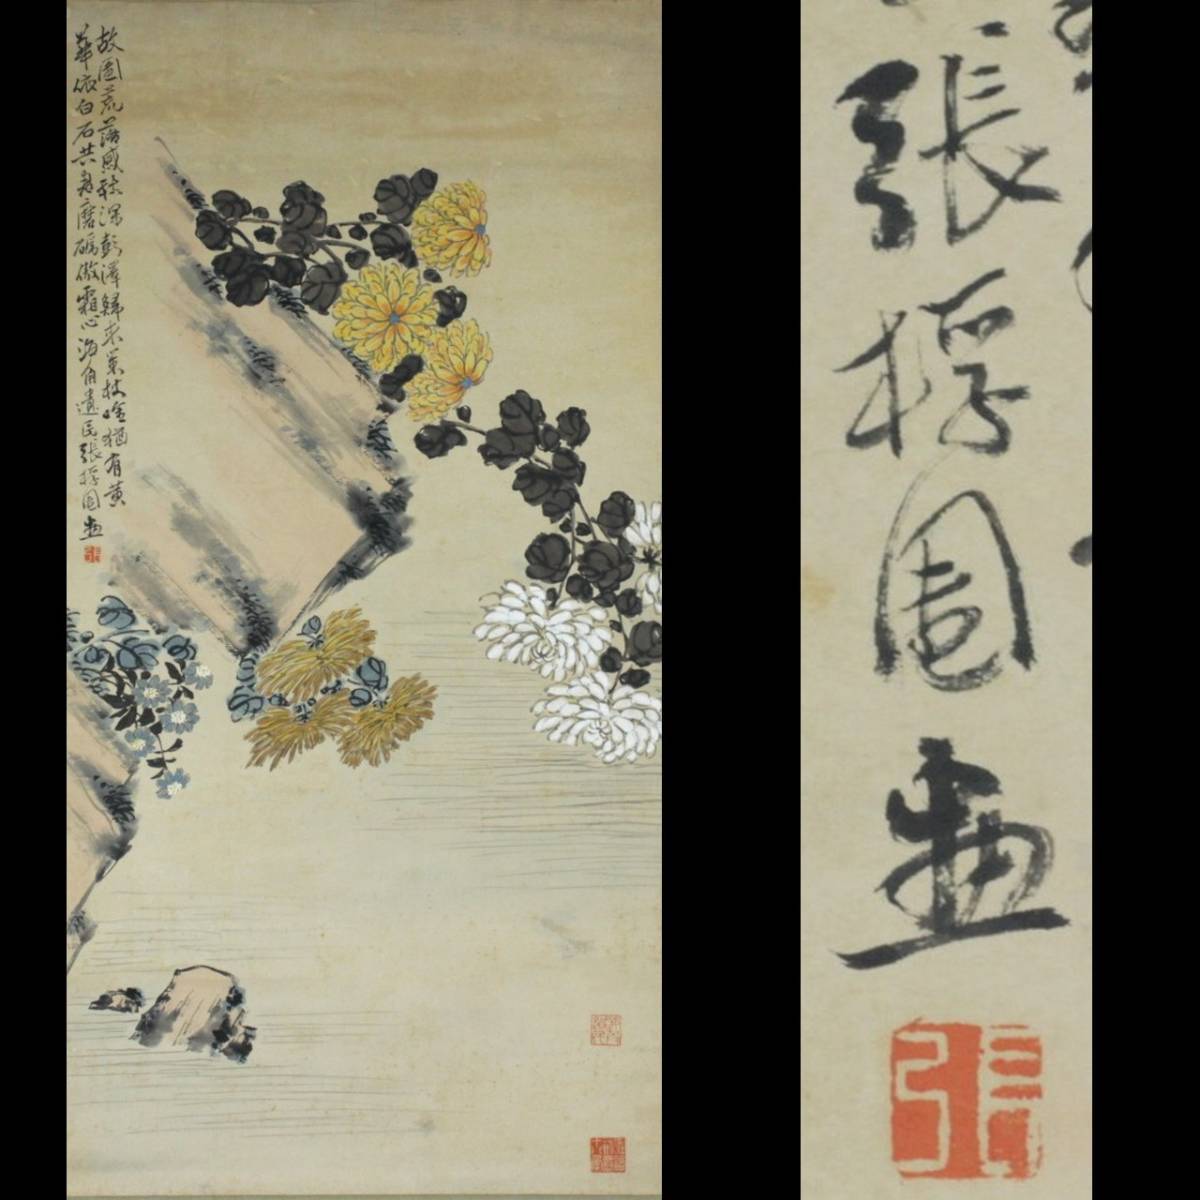 故園荒落感殊深彭澤歸來策杖吟猶有黃
華依白石共君磨礪傲霜心海角遺民張桴園畫
張
張桴園畫
張